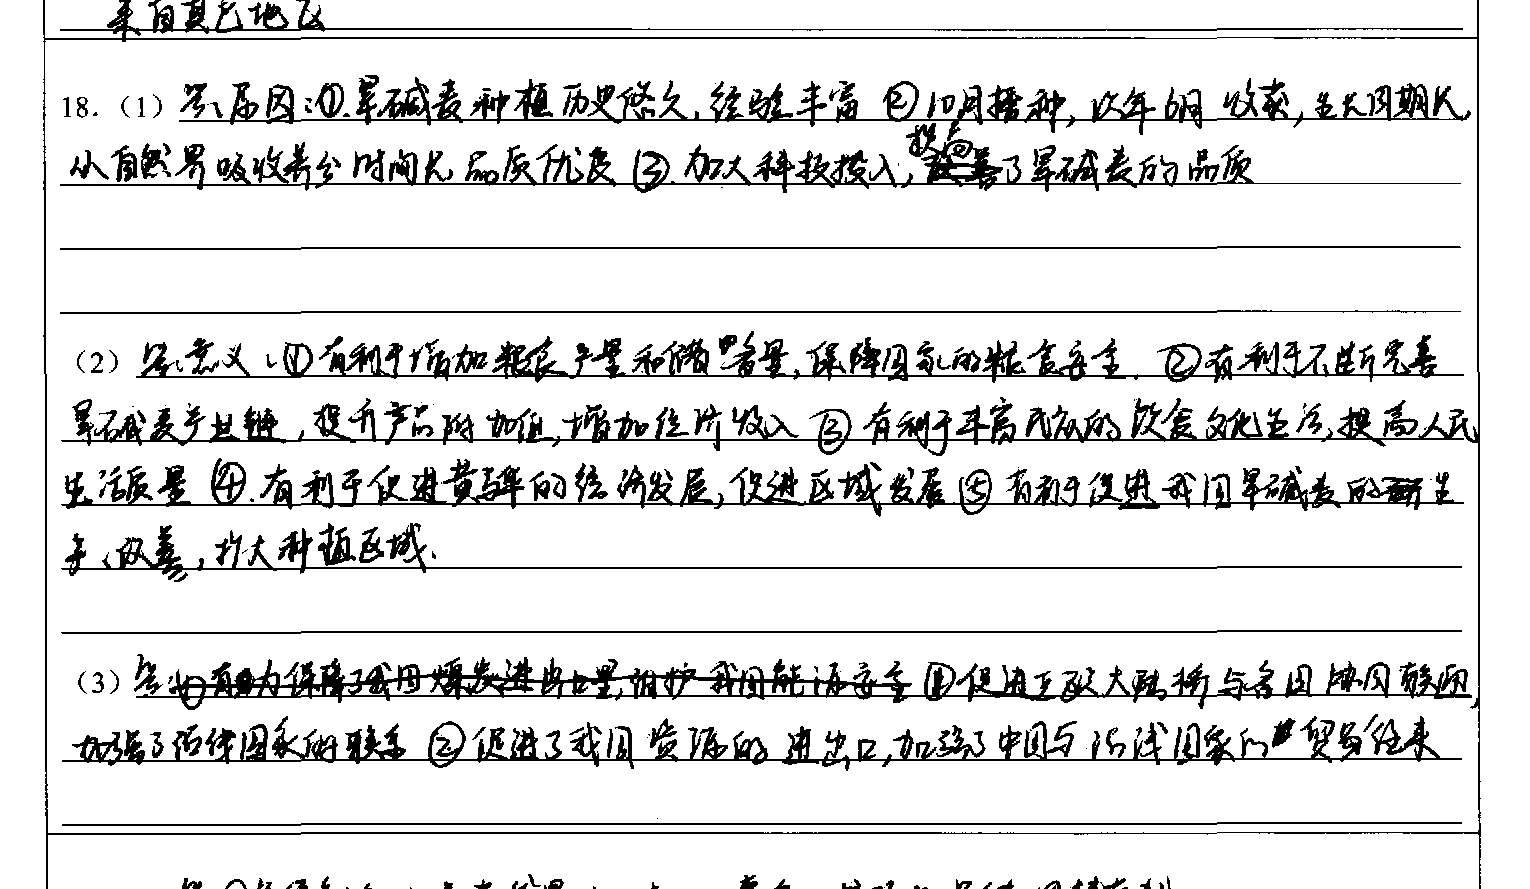 来自其它地区
18.（1）答：原因：①.旱碱麦种植历史悠久，经验丰富 ②10月播种，次年6月收获，生长周期长，
从自然界吸收养分时间长 品质优良 ③.加大科技投入，提高了旱碱麦的品质
（2）答：意义：①有利于增加粮食产量和储备量，保障国家的粮食安全. ②有利于不断完善
旱碱麦产业链，提升产品附加值，增加经济收入 ③有利于丰富民众的饮食文化生活，提高人民
生活质量 ④.有利于促进黄骅的经济发展，促进区域发展 ⑤有利于促进我国旱碱麦的生
产、改善，扩大种植区域.
（3）答：①有助力保障了我国煤炭进出口量，维护我国能源安全 ①促进亚欧大陆桥与各国协同联动，
加强了沿线国家的联系 ②促进了我国资源的进出口，加强了中国与沿线国家的贸易往来